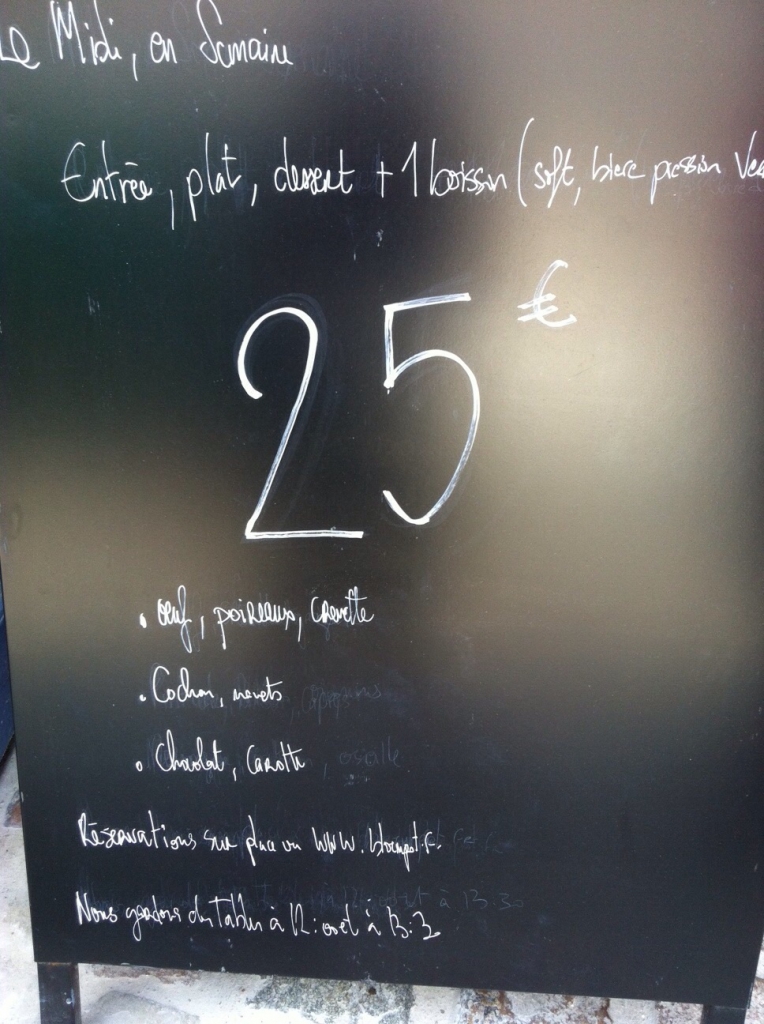 Le Midi, en Semaine
Entrée, plat, dessert + 1 boisson (soft, bière pression Ve
25 €
• œuf, poireaux, crevette
• Cochon, navets
• Chocolat, Carotte
Réservations sur place ou WWW.
Nous gardons des Tables à 12:00 et à 13:3